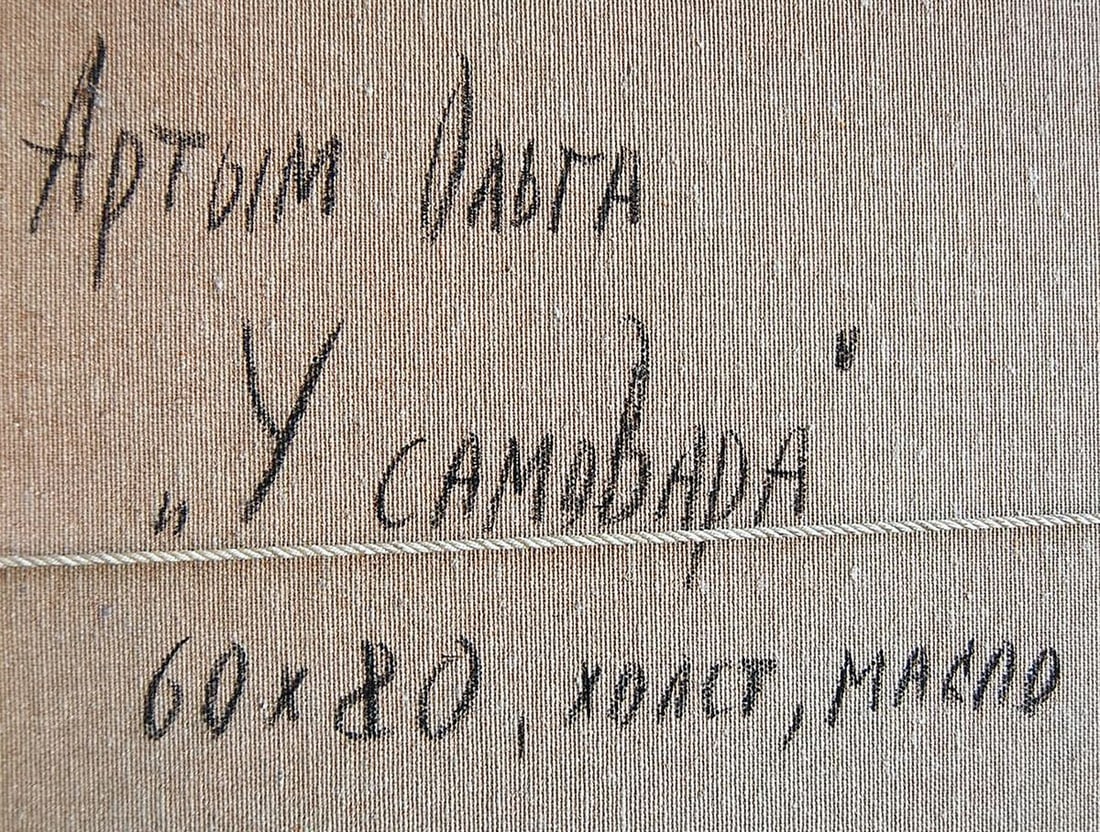 Артым Ольга
„У самовара"
60х80, холст, масло